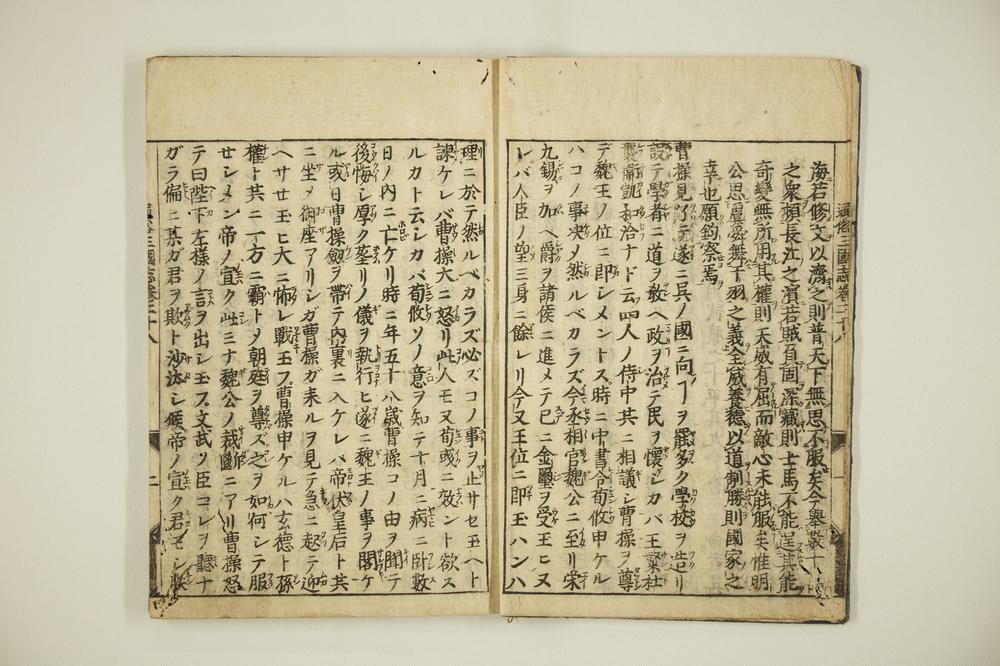 海若修文以濟之則普天下無思不服矣今擧數十萬
之衆頓長江之濱若賊負固深藏則士馬不能逞其能
奇變無所用其權則天威有屈而敵心未能服矣惟明
公思虞舜舞干羽之義全威養德以道制勝則國家之
幸也願鈞察焉
曹操見了テ遂ニ呉ノ國ニ向フヿヲ罷多ク學校ヲ造リ
設テ學者ニ道ヲ敎ヘ政ヲ治テ民ヲ懷シカバ王粲杜
襲衛凱和洽ナド云四人ノ侍中其ニ相議シ曹操ヲ尊
デ魏王ノ位ニ即シメントス時ニ中書令荀攸申ケル
ハコノ事决メ然ルベカラズ今丞相官魏公ニ至リ榮
九錫ヲ加ヘ爵ヲ諸侯ニ進メテ已ニ金璽ヲ受玉ヒヌ
レバ人臣ノ望三身ニ餘レリ今又王位ニ即玉ハンハ
理ニ於テ然ルベカラズ必ズコノ事ヲ止サセ玉ヘト
諫ケレバ曹操大ニ怒リ此人モ又荀彧ニ效ント欲ス
ルカト云シカバ荀攸ソノ意ヲ知テ十月ニ病ニ臥數
日ノ内ニ亡ケリ時ニ年五十八歳曹操コノ由ヲ聞テ
後悔シ厚ク葬リノ儀ヲ執行ヒ遂ニ魏王ノ事ヲ閣ケ
ル或日曹操劔ヲ帶テ内裏ニ入ケレバ帝伏皇后ト共
ニ坐メ御座アリシガ曹操ガ来ルヲ見テ急ニ起テ迎
ヘサセ玉ヒ大ニ怖レ戰玉フ曹操申ケルハ玄德ト孫
權ト其ニ一方ニ霸トメ朝廷ヲ尊ズ之ヲ如何シテ服
せシメン帝ノ宣ク此ミナ魏公ノ裁斷ニアリ曹操怒
テ曰陛下左樣ノ言ヲ出シ玉ス文武ノ臣コレヲ聽ナ
ガラ偏ニ某ガ君ヲ欺ト沙汰シ候帝ノ宣ク君モシ朕